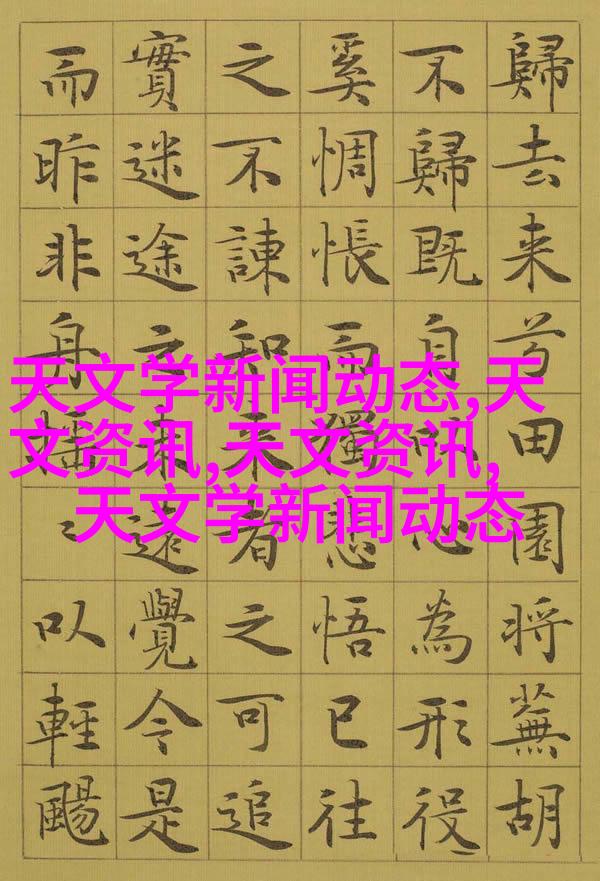 歸去来兮田園将蕪胡
不歸既自以心為形役
奚惆悵而獨悲悟已往
之不諫知来者之可追
實迷途之未遠覺今是
而昨非舟摇〻以輕颺
天文学新闻动态,天
文资讯,天文资讯,
天文学新闻动态